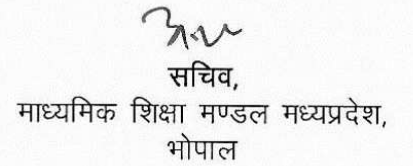 सचिव,
माध्यमिक शिक्षा मण्डल मध्यप्रदेश,
भोपाल